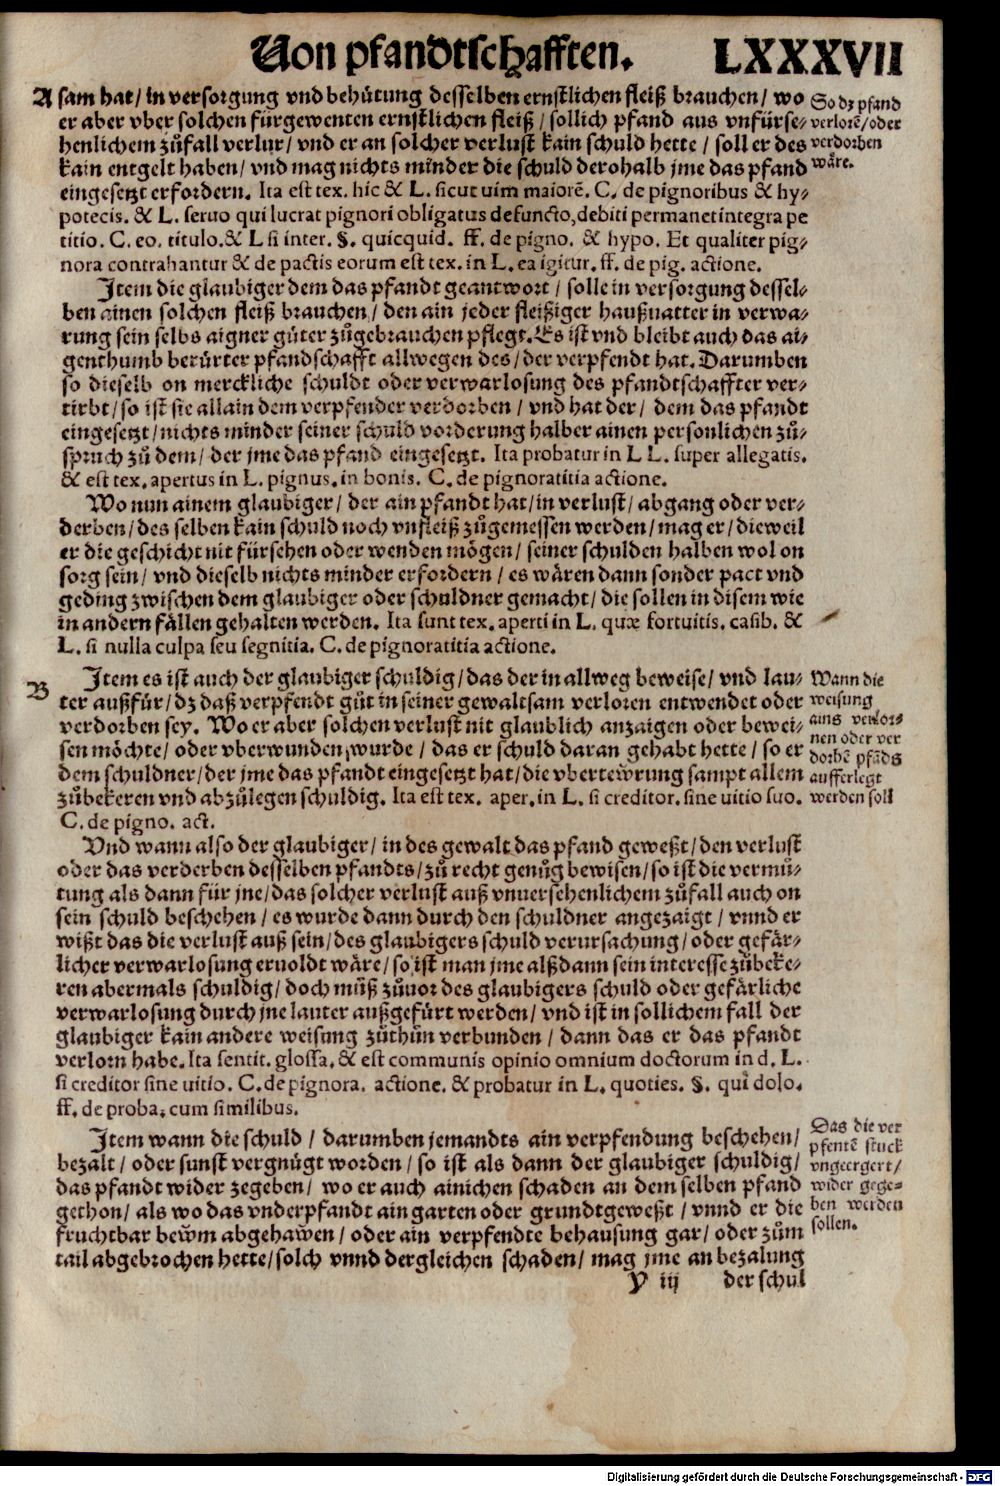 Von pfandtschafften. LXXXVII
A sam hat / in versorgung vnd behütung desselben ernstlichen fleiß brauchen / wo
er aber vber solchen fürgewenten ernstlichen fleiß / sollich pfand aus vnfürse-
henlichem zůfall verlur / vnd er an solcher verlust kain schuld hette / soll er des
kain entgelt haben / vnd mag nichts minder die schuld derohalb jme das pfand
eingesetzt erfordern. Ita est tex. hic & L. sicut uim maiorē. C. de pignoribus & hy-
potecis. & L. seruo qui lucrat pignori obligatus defuncto, debiti permanet integra pe
titio. C. eo. titulo. & L si inter. §. quicquid. ff. de pigno. & hypo. Et qualiter pig-
nora contrahantur & de pactis eorum est tex. in L. ea igitur. ff. de pig. actione.
So dz pfand
verlorē / oder
verdorben
wäre.
Item die glaubiger dem das pfandt geantwort / solle in versorgung dessel-
ben ainen solchen fleiß brauchen / den ain jeder fleißiger haußuatter in verwa-
rung sein selbs aigner güter zůgebrauchen pflegt. Es ist vnd bleibt auch das ai-
genthumb berürter pfandschafft allwegen des / der verpfendt hat. Darumben
so dieselb on merckliche schuldt oder verwarlosung des pfandtschaffter ver-
tirbt / so ist sie allain dem verpfender verdorben / vnd hat der / dem das pfandt
eingesetzt / nichts minder seiner schuld vorderung halber ainen personlichen zů-
spruch zů dem / der jme das pfand eingesetzt. Ita probatur in L L. super allegatis.
& est tex. apertus in L. pignus. in bonis. C. de pignoratitia actione.
Wo nun ainem glaubiger / der ain pfandt hat / in verlust / abgang oder ver-
derben / des selben kain schuld noch vnfleiß zůgemessen werden / mag er / dieweil
er die geschicht nit fürsehen oder wenden mögen / seiner schulden halben wol on
sorg sein / vnd dieselb nichts minder erfordern / es wären dann sonder pact vnd
geding zwischen dem glaubiger oder schuldner gemacht / die sollen in disem wie
in andern fällen gehalten werden. Ita sunt tex. aperti in L. quæ fortuitis. casib. &
L. si nulla culpa seu segnitia. C. de pignoratitia actione.
B Item es ist auch der glaubiger schuldig / das der in allweg beweise / vnd lau-
ter außfür / dz daß verpfendt gůt in seiner gewaltsam verloren entwendet oder
verdorben sey. Wo er aber solchen verlust nit glaublich anzaigen oder bewei-
sen möchte / oder vberwunden wurde / das er schuld daran gehabt hette / so er
dem schuldner / der jme das pfandt eingesetzt hat / die vberteẅrung sampt allem
zůbekeren vnd abzůlegen schuldig. Ita est tex. aper. in L. si creditor. sine uitio suo.
C. de pigno. act.
Wann die
weisung
ains verlor-
nen oder ver
dorbē pfāds
aufferlegt
werden soll
Vnd wann also der glaubiger / in des gewalt das pfand geweßt / den verlust
oder das verderben desselben pfandts / zů recht genůg bewisen / so ist die vermů-
tung als dann für jne / das solcher verlust auß vnuersehenlichem zůfall auch on
sein schuld beschehen / es wurde dann durch den schuldner angezaigt / vnnd er
wißt das die verlust auß sein / des glaubigers schuld verursachung / oder gefär-
licher verwarlosung eruoldt wäre / so ist man jme alßdann sein interesse zůbeke-
ren abermals schuldig / doch můß zůuor des glaubigers schuld oder gefärliche
verwarlosung durch jne lauter außgefürt werden / vnd ist in sollichem fall der
glaubiger kain andere weisung zůthůn verbunden / dann das er das pfandt
verlorn habe. Ita sentit. glossa. & est communis opinio omnium doctorum in d. L.
si creditor sine uitio. C. de pignora. actione. & probatur in L. quoties. §. qui dolo.
ff. de proba. cum similibus.
Item wann die schuld / darumben jemandts ain verpfendung beschehen /
bezalt / oder sunst vergnügt worden / so ist als dann der glaubiger schuldig /
das pfandt wider zegeben / wo er auch ainichen schaden an dem selben pfand
gethon / als wo das vnderpfandt ain garten oder grundt geweßt / vnnd er die
fruchtbar beẅm abgehaẅen / oder ain verpfendte behausung gar / oder zům
tail abgebrochen hette / solch vnnd dergleichen schaden / mag jme an bezalung
Das die ver
pfentē stuck
vngeergert /
wider gege-
ben werden
sollen.
Y iij der schul
Digitalisierung gefördert durch die Deutsche Forschungsgemeinschaft - DFG